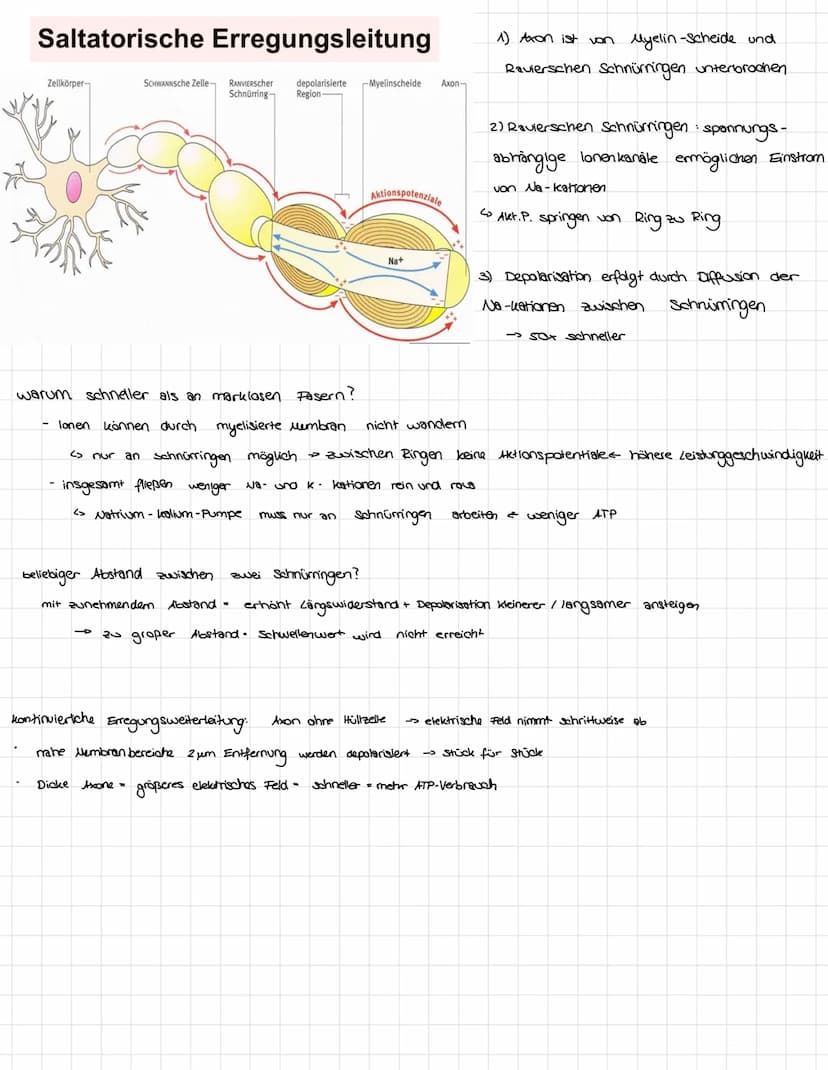 Saltatorische Erregungsleitung
Zellkörper
SCHWANNsche Zelle
RANVIERscher
Schnürring
depolarisierte
Region
Myelinscheide
Axon
Aktionspotenziale
Na+
1) Axon ist von Myelin-Scheide und
Ravierschen Schnürringen unterbrochen
2) Ravierschen Schnürringen : spannungs-
abhängige Ionenkanäle ermöglichen Einstrom
von Na-kationen
↳ Akt.P. springen von Ring zu Ring
3) Depolarisation erfolgt durch Diffusion der
Na-kationen zwischen Schnürringen
→ 50x schneller
warum schneller als an marklosen Fasern?
- Ionen können durch myelisierte Membran nicht wandern
↳ nur an Schnürringen möglich → zwischen Ringen keine Aktionspotentiale ← höhere Leistunggeschwindigkeit
- insgesamt fließen weniger Na- und K- kationen rein und raus
↳ Natrium-kalium-Pumpe muss nur an Schnürringen arbeiten ← weniger ATP
beliebiger Abstand zwischen zwei Schnürringen?
mit zunehmendem Abstand = erhöht Längswiderstand + Depolarisation kleinerer / langsamer ansteigen
→ zu großer Abstand = Schwellenwert wird nicht erreicht
kontinuierliche Erregungsweiterleitung: Axon ohne Hüllzelle → elektrische Feld nimmt schrittweise ab
· nahe Membranbereiche 2µm Entfernung werden depolarisiert → Stück für Stück
· Dicke Axone = größeres elektrisches Feld = schneller = mehr ATP-Verbrauch